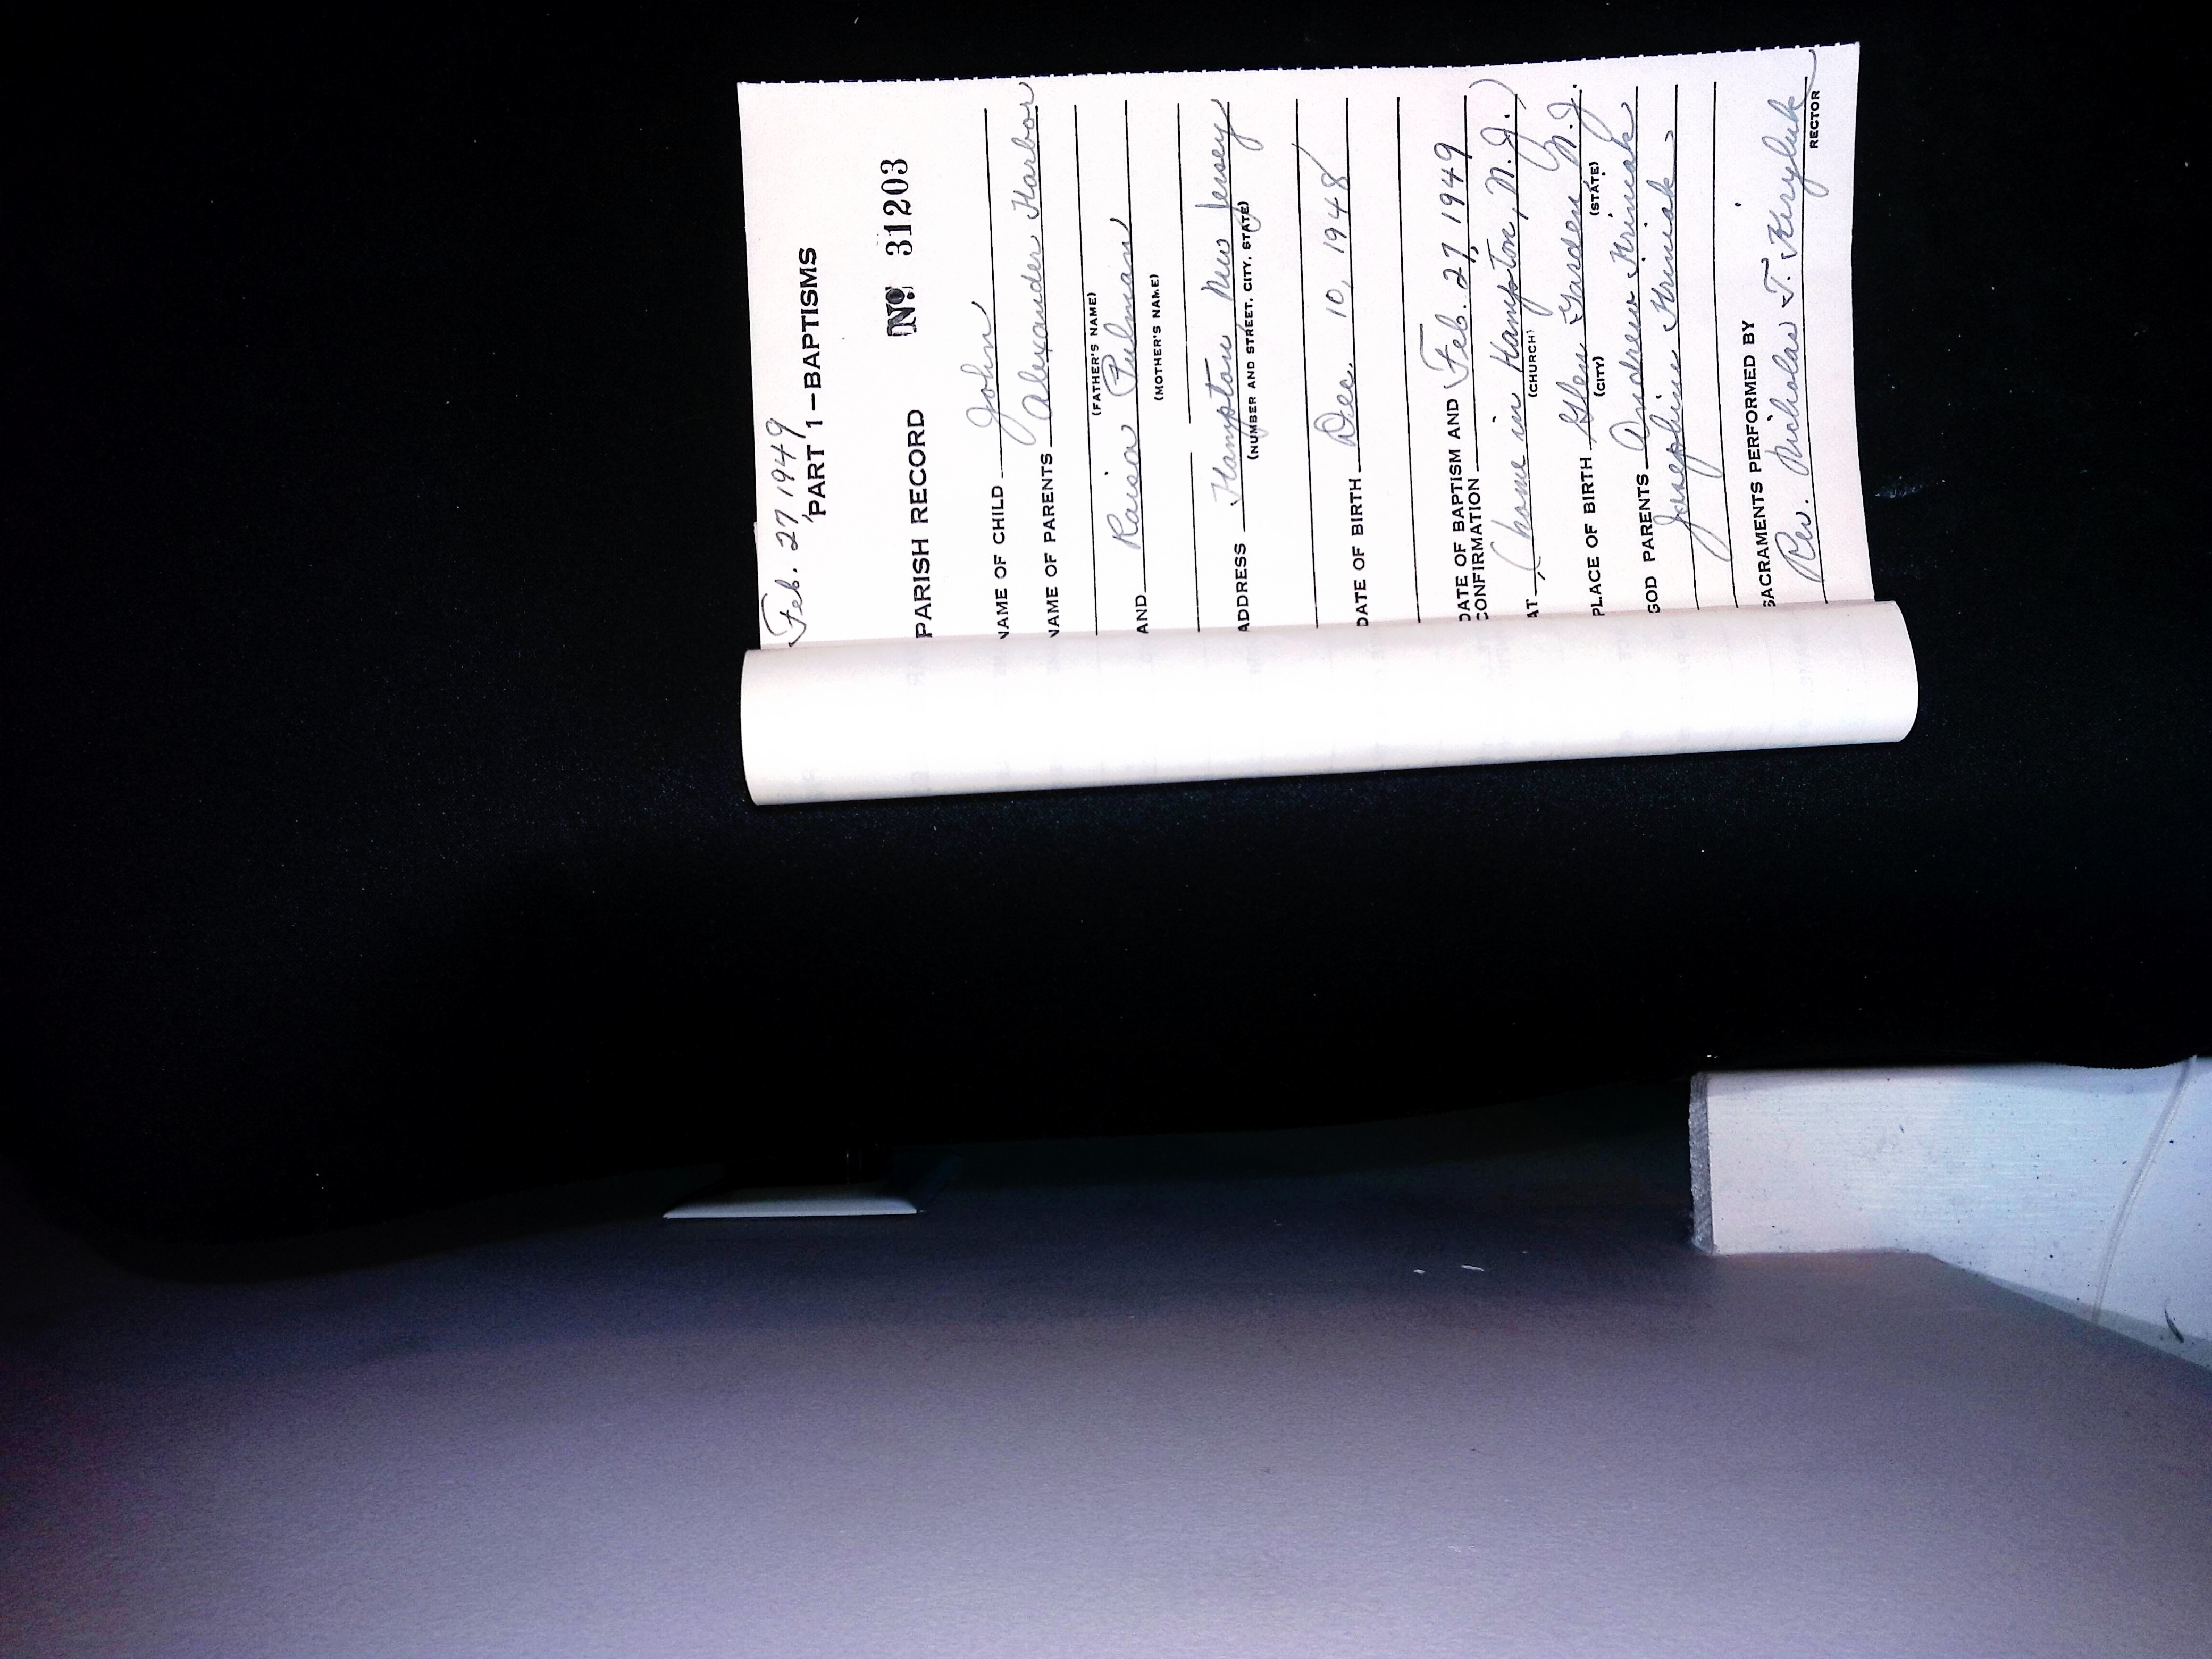 Feb. 27, 1949
PART 1—BAPTISMS
PARISH RECORD Nº 31203
NAME OF CHILD John
NAME OF PARENTS Alexander Harbor
(FATHER'S NAME)
AND Raisa Pulman
(MOTHER'S NAME)
ADDRESS Hampton, New Jersey
(NUMBER AND STREET, CITY, STATE)
DATE OF BIRTH Dec. 10, 1948
DATE OF BAPTISM AND Feb. 27, 1949
CONFIRMATION
AT (home in Hampton, N. J.)
(CHURCH)
PLACE OF BIRTH Glen Garden, N.J.
(CITY) (STATE)
GOD PARENTS Andrew Hriniak
Josephine Hriniak
SACRAMENTS PERFORMED BY
Rev. Nicholas T. Kiryluk
RECTOR